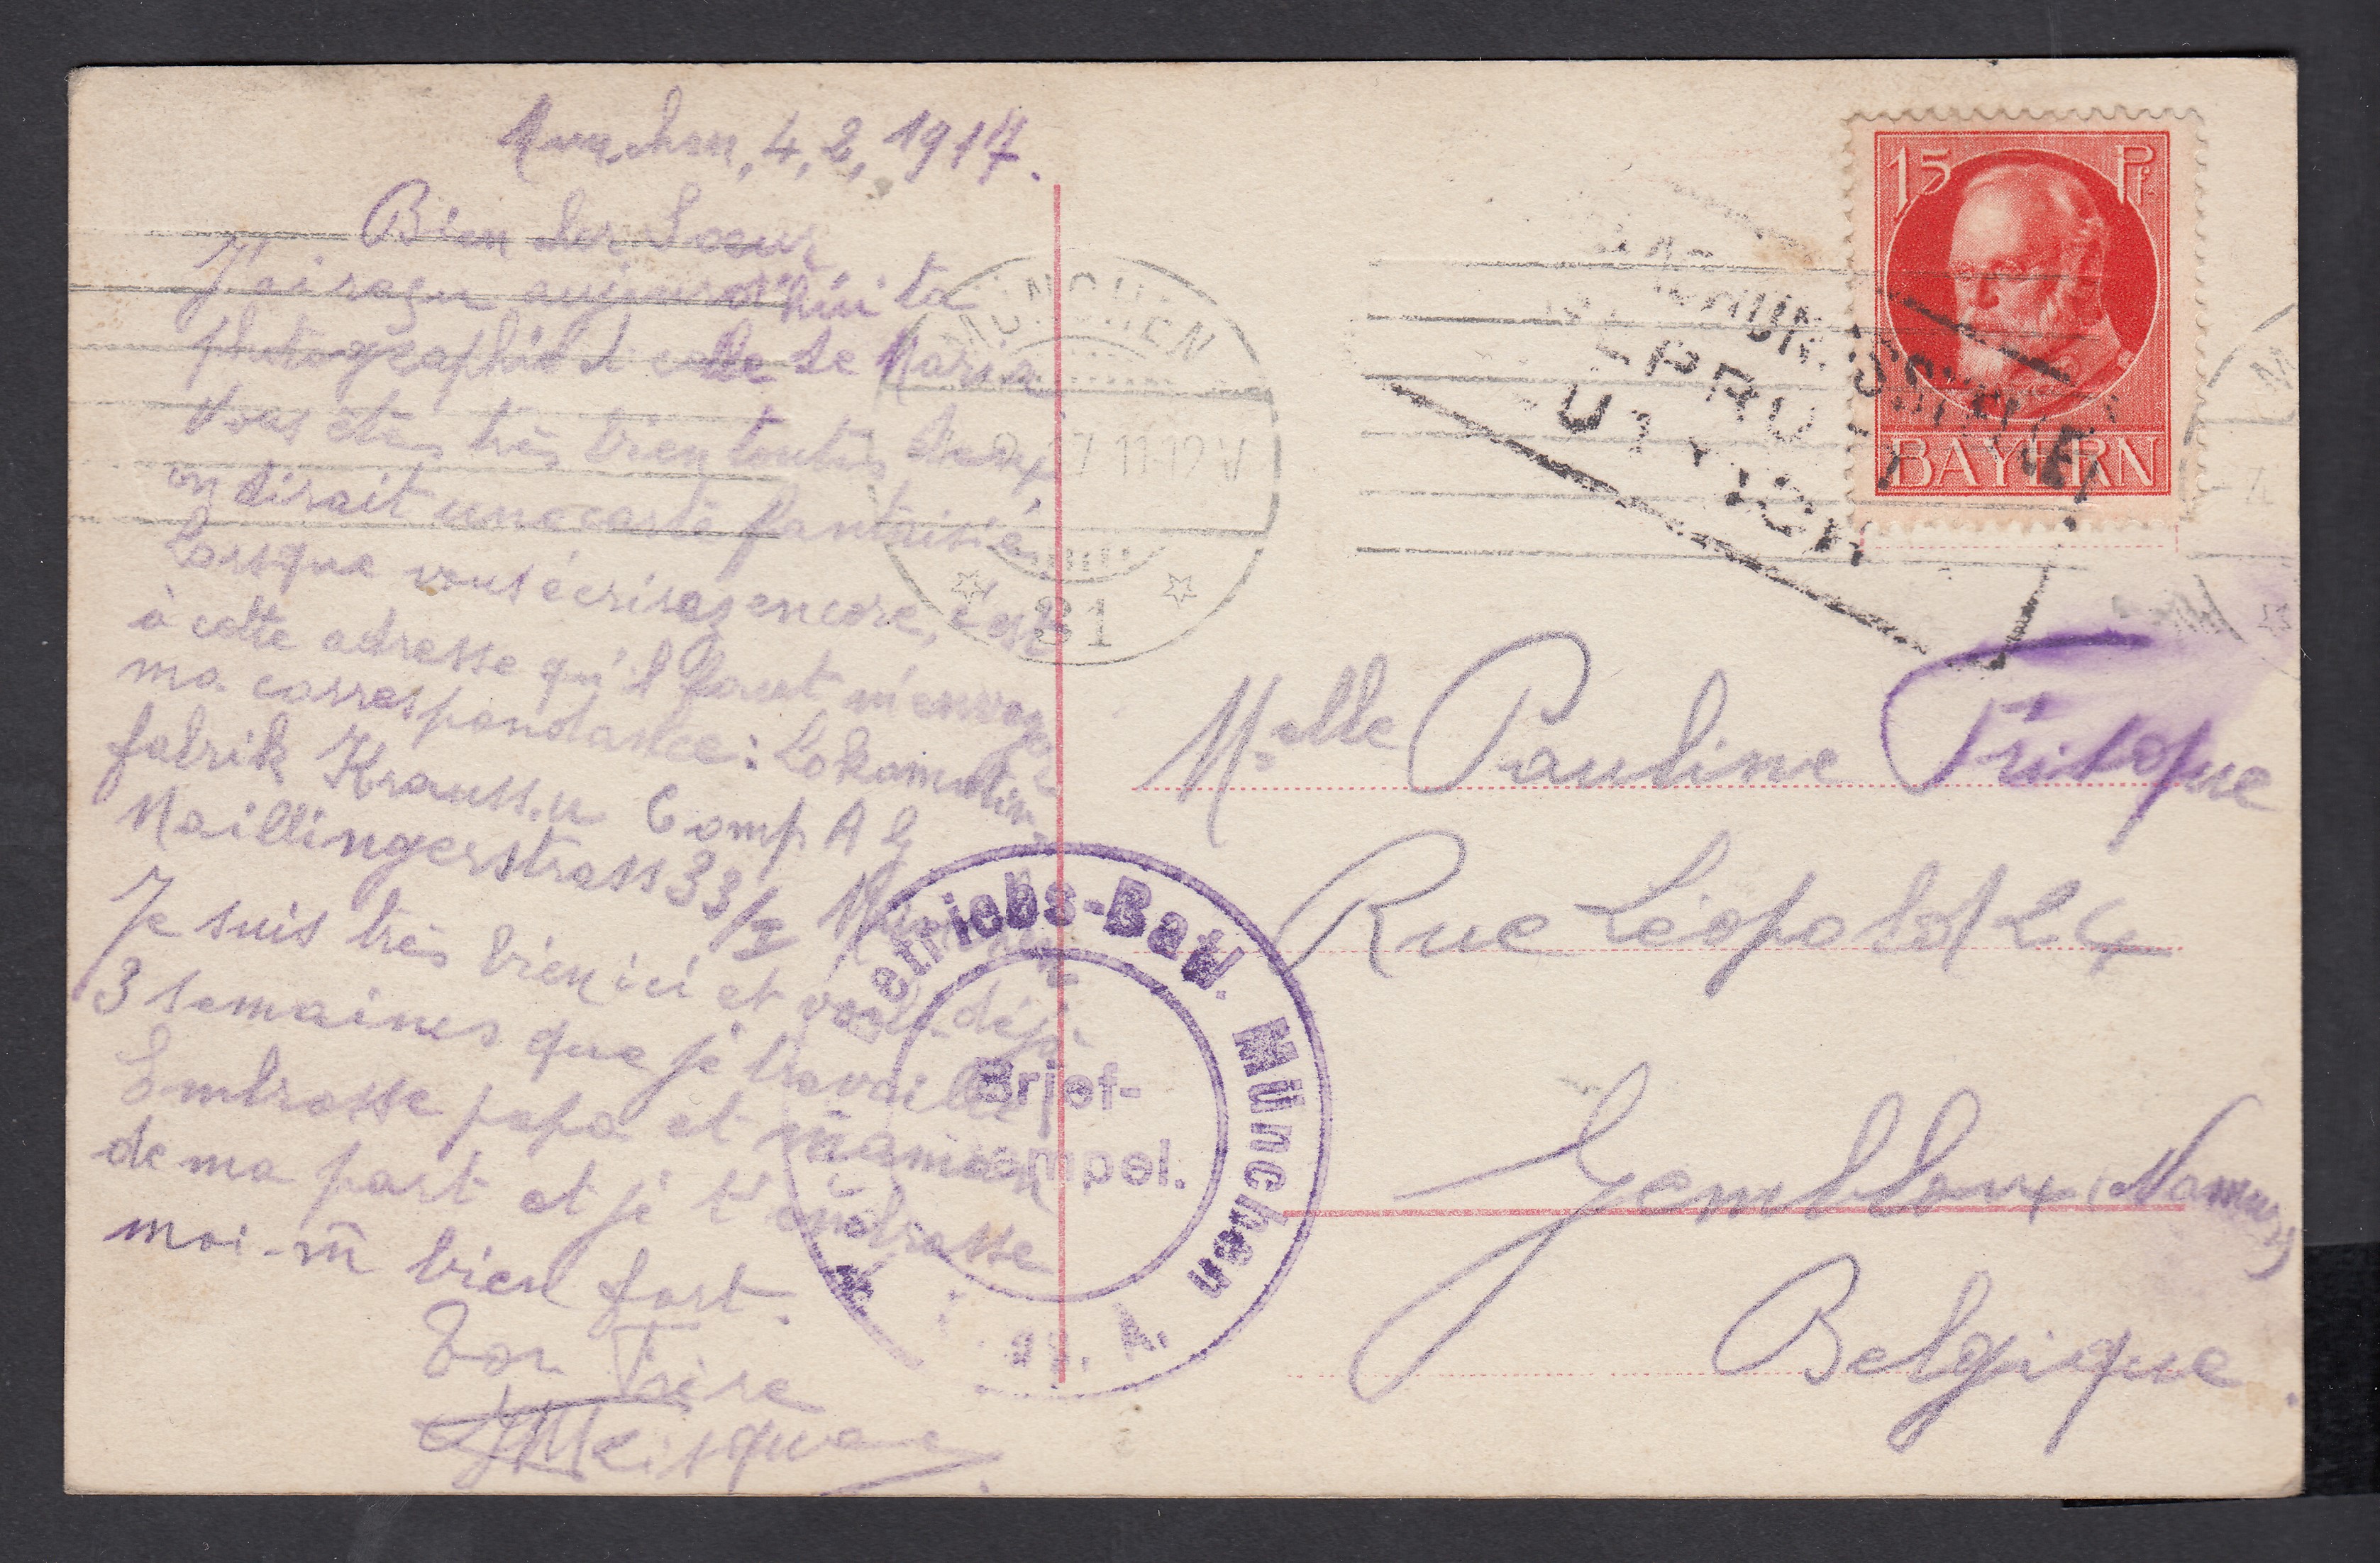 Munchen, 4, 2, 1917.
Bien cher Soeur
J'ai reçu aujourd'hui ta
photographie et celle de Maria
Vous êtes très bien toutes deux,
on dirait une carte fantaisie
Lorsque vous écrirez encore, c'est
à cette adresse qu'il faut m'envoyer
ma correspondance: Lokomotiv-
fabrik Krauss.u Comp A G
Maillingerstrass 33/2 München
Je suis très bien ici et voilà déjà
3 semaines que je travaille
Embrasse papa et maman
de ma part et je t'embrasse
moi-m̄ bien fort.
Ton Frère
15 Pf
BAYERN
MÜNCHEN
17 11-12 V
31
Melle Pauline
Rue Léopold 24
Gembloux (Namur)
Belgique.
Betriebs-Batl. München
Brief-